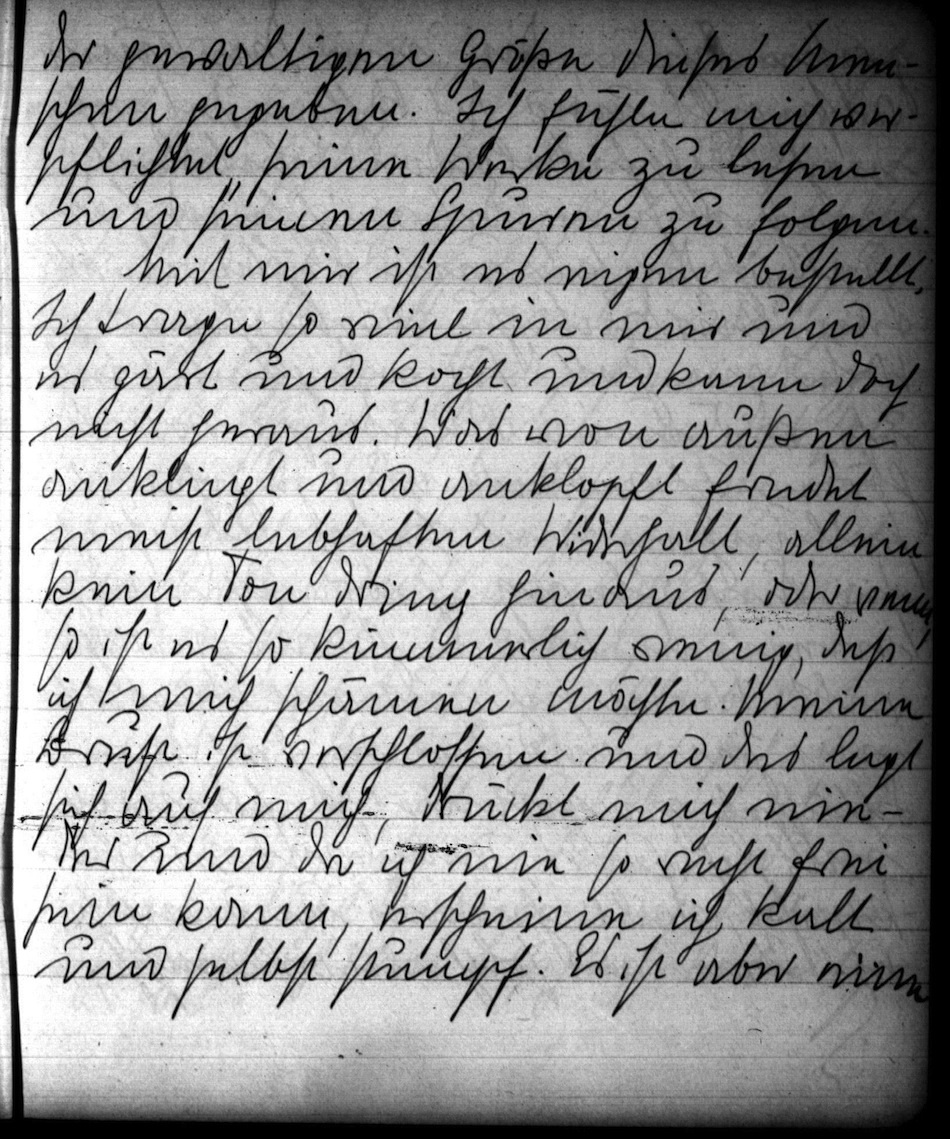 der gewaltigen Größe dieses Men-
schen gegeben. Ich fühle mich ver-
pflichtet, seine Werke zu lesen
und seinen Spuren zu folgen.
Mit mir ist es eigen bestellt,
Ich trage so viel in mir und
es gärt und kocht und kann doch
nicht heraus. Was von außen
anklingt und anklopft findet
meist lebhaften Widerhall, allein
kein Ton dring hinaus, oder wenn,
so ist es so kümmerlich wenig, daß
ich mich schämen möchte. Meine
Brust ist verschlossen und das legt
sich auf mich, drückt mich nie-
der und da ich nie so recht frei
sein kann, erscheine ich kalt
und selbst stumpf. Es ist aber eine